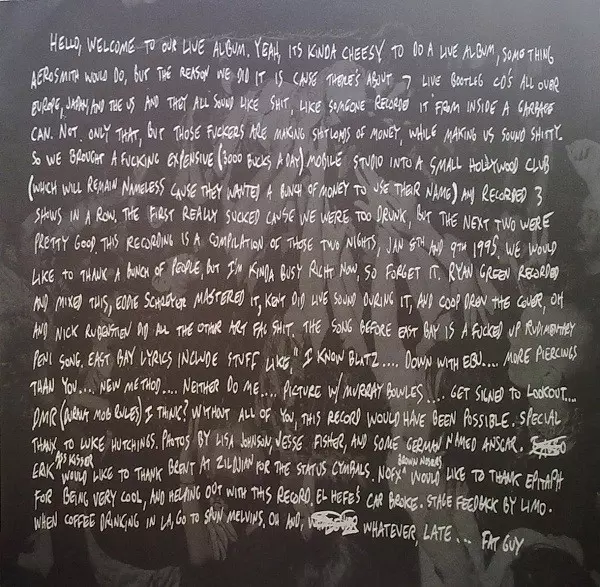 HELLO, WELCOME TO OUR LIVE ALBUM. YEAH, ITS KINDA CHEESY TO DO A LIVE ALBUM, SOMETHING
AEROSMITH WOULD DO, BUT THE REASON WE DID IT IS CAUSE THERE'S ABOUT 7 LIVE BOOTLEG CD'S ALL OVER
EUROPE, JAPAN, AND THE US AND THEY ALL SOUND LIKE SHIT, LIKE SOMEONE RECORDED IT FROM INSIDE A GARBAGE
CAN. NOT ONLY THAT, BUT THOSE FUCKERS ARE MAKING SHITLOADS OF MONEY, WHILE MAKING US SOUND SHITTY.
SO WE BROUGHT A FUCKING EXPENSIVE (3000 BUCKS A DAY) MOBILE STUDIO INTO A SMALL HOLLYWOOD CLUB
(WHICH WILL REMAIN NAMELESS CAUSE THEY WANTED A BUNCH OF MONEY TO USE THEIR NAME) AND RECORDED 3
SHOWS IN A ROW, THE FIRST REALLY SUCKED CAUSE WE WERE TOO DRUNK, BUT THE NEXT TWO WERE
PRETTY GOOD. THIS RECORDING IS A COMPILATION OF THOSE TWO NIGHTS, JAN 8TH AND 9TH 1995. WE WOULD
LIKE TO THANK A BUNCH OF PEOPLE, BUT I'M KINDA BUSY RIGHT NOW, SO FORGET IT. RYAN GREEN RECORDED
AND MIXED THIS, EDDIE SCHREYER MASTERED IT, KENT DID LIVE SOUND DURING IT, AND COOP DREW THE COVER, OH
AND NICK RUBENSTIEN DID ALL THE OTHER ART FAG SHIT. THE SONG BEFORE EAST BAY IS A FUCKED UP RUDIMENTARY
PENI SONG. EAST BAY LYRICS INCLUDE STUFF LIKE," I KNOW BLATZ.... DOWN WITH EBU.... MORE PIERCINGS
THAN YOU.... NEW METHOD.... NEITHER DO ME.... PICTURE W/ MURRAY BOWLES.... GET SIGNED TO LOOKOUT....
DMR (DURANT MOB RULES) I THINK? WITHOUT ALL OF YOU, THIS RECORD WOULD HAVE BEEN POSSIBLE. SPECIAL
THANX TO LUKE HUTCHINGS. PHOTOS BY LISA JOHNSON, JESSE FISHER, AND SOME GERMAN NAMED ANSGAR.
ERIK ASS KISSER WOULD LIKE TO THANK BRENT AT ZILDJIAN FOR THE STATUS CYMBALS. NOFX BROWN NOSERS WOULD LIKE TO THANK EPITAPH
FOR BEING VERY COOL, AND HELPING OUT WITH THIS RECORD. EL HEFE'S CAR BROKE. STAGE FEEDBACK BY LIMO.
WHEN COFFEE DRINKING IN LA, GO TO SPUN MELVINS. OH AND, WHATEVER, LATE... FAT GUY